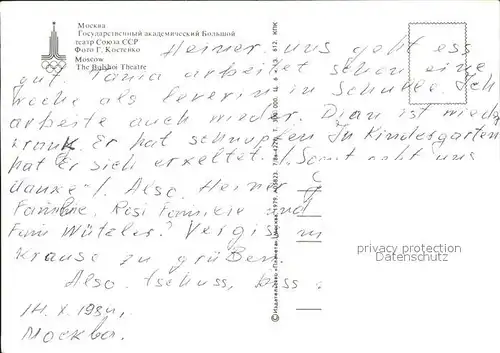 Москва
Государственный академический Большой
театр Союза ССР
Фото Г. Костенко
Moscow
The Bolshoi Theatre
Heiner, uns geht ess
gut. Tania arbeitet schon eine
Woche als in Schuhle. Ich
arbeite auch wieder. Dian ist wieder
krank. Er hat schnupfen In Kindergarten
hat Er sich erkeltet. Somst geht uns
danke! Also. Heiner
Familie, Rosi Familie und
Fam Wüteler? Vergis
Krause zu grüßen.
Also. tschuss, biss
14. X. 1984.
Москва.
© Издательство «Планета», Москва, 1979.
privacy protection
Datenschutz